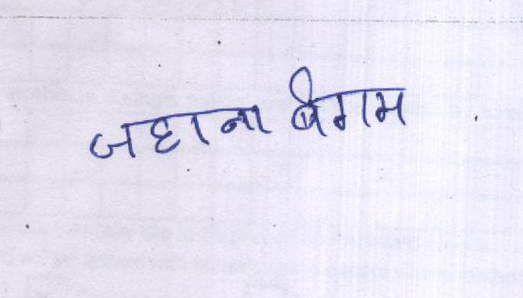 जहाना बेगम